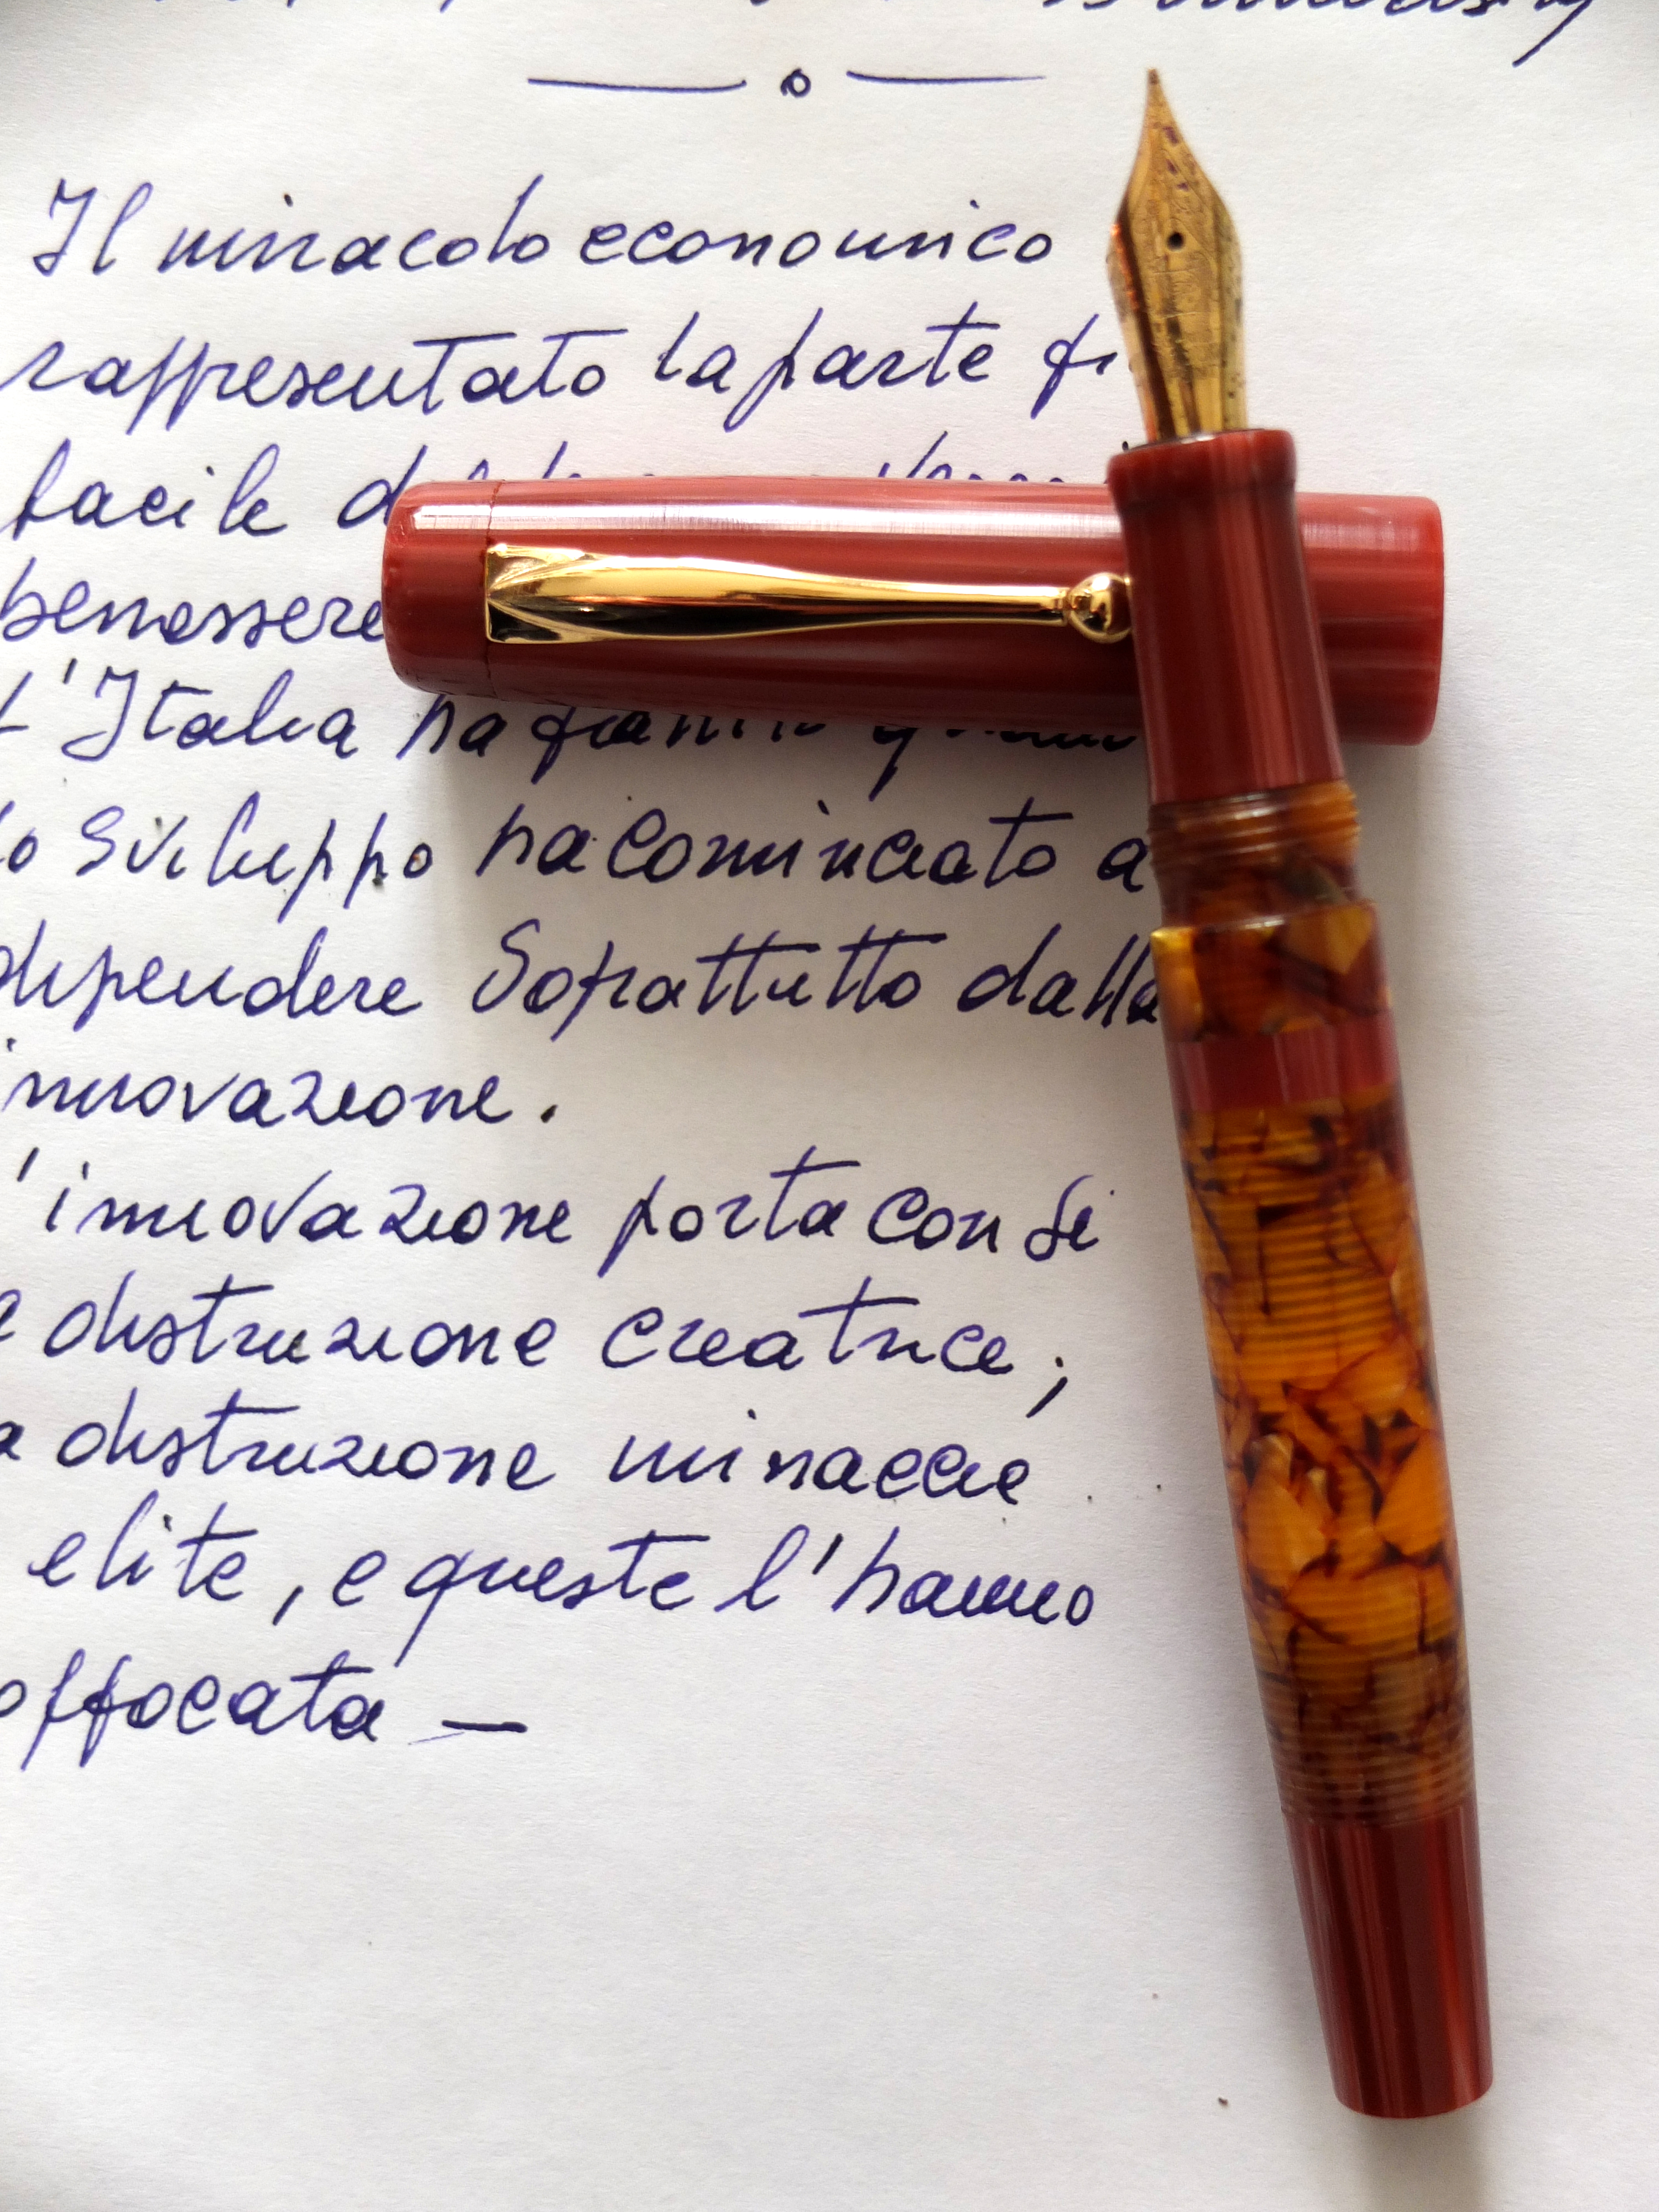 Il miracolo economico
rappresentato la parte
facile
benessere
L'Italia ha
lo sviluppo ha cominciato a
dipendere Soprattutto dalla
innovazione.
'innovazione porta con se
distruzione creatrice;
distruzione minaccie
elite, e queste l'hanno
offocata —